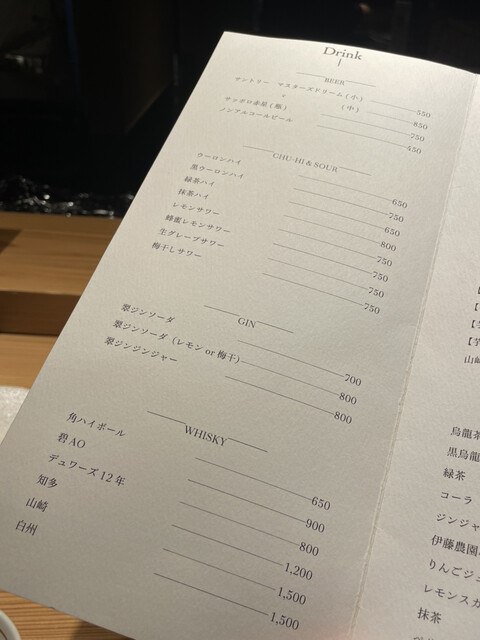 Drink
BEER
サントリー マスターズドリーム (小) 550
〃 (中) 850
サッポロ赤星 (瓶) 750
ノンアルコールビール 450
CHU-HI & SOUR
ウーロンハイ 650
黒ウーロンハイ 750
緑茶ハイ 650
抹茶ハイ 800
レモンサワー 750
蜂蜜レモンサワー 750
生グレープサワー 750
梅干しサワー 750
GIN
翠ジンソーダ 700
翠ジンソーダ (レモン or 梅干) 800
翠ジンジンジャー 800
WHISKY
角ハイボール 650
碧 AO 900
デュワーズ 12 年 800
知多 1,200
山崎 1,500
白州 1,500
山崎
烏龍茶
黒烏龍
緑茶
コーラ
ジンジャ
伊藤農園
りんごジュ
レモンスカ
抹茶